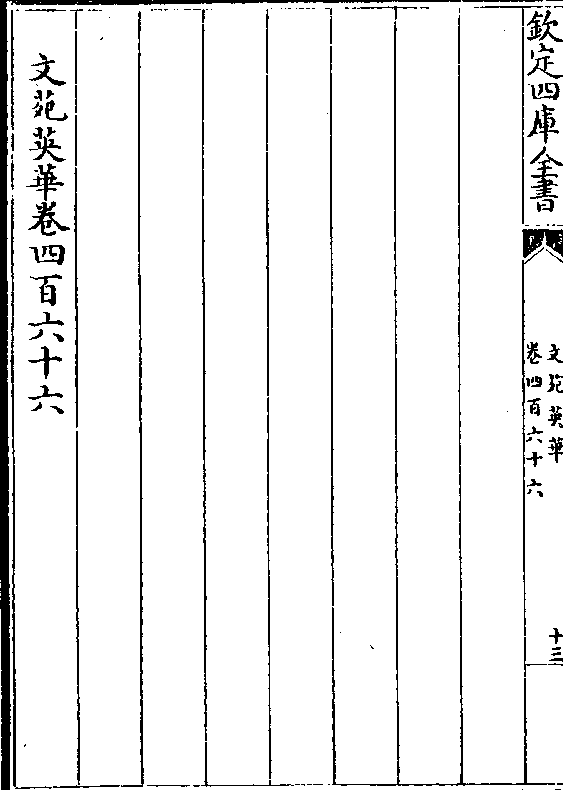 欽定四庫全書
文苑英華
卷四百六十六
十三
文苑英華卷四百六十六